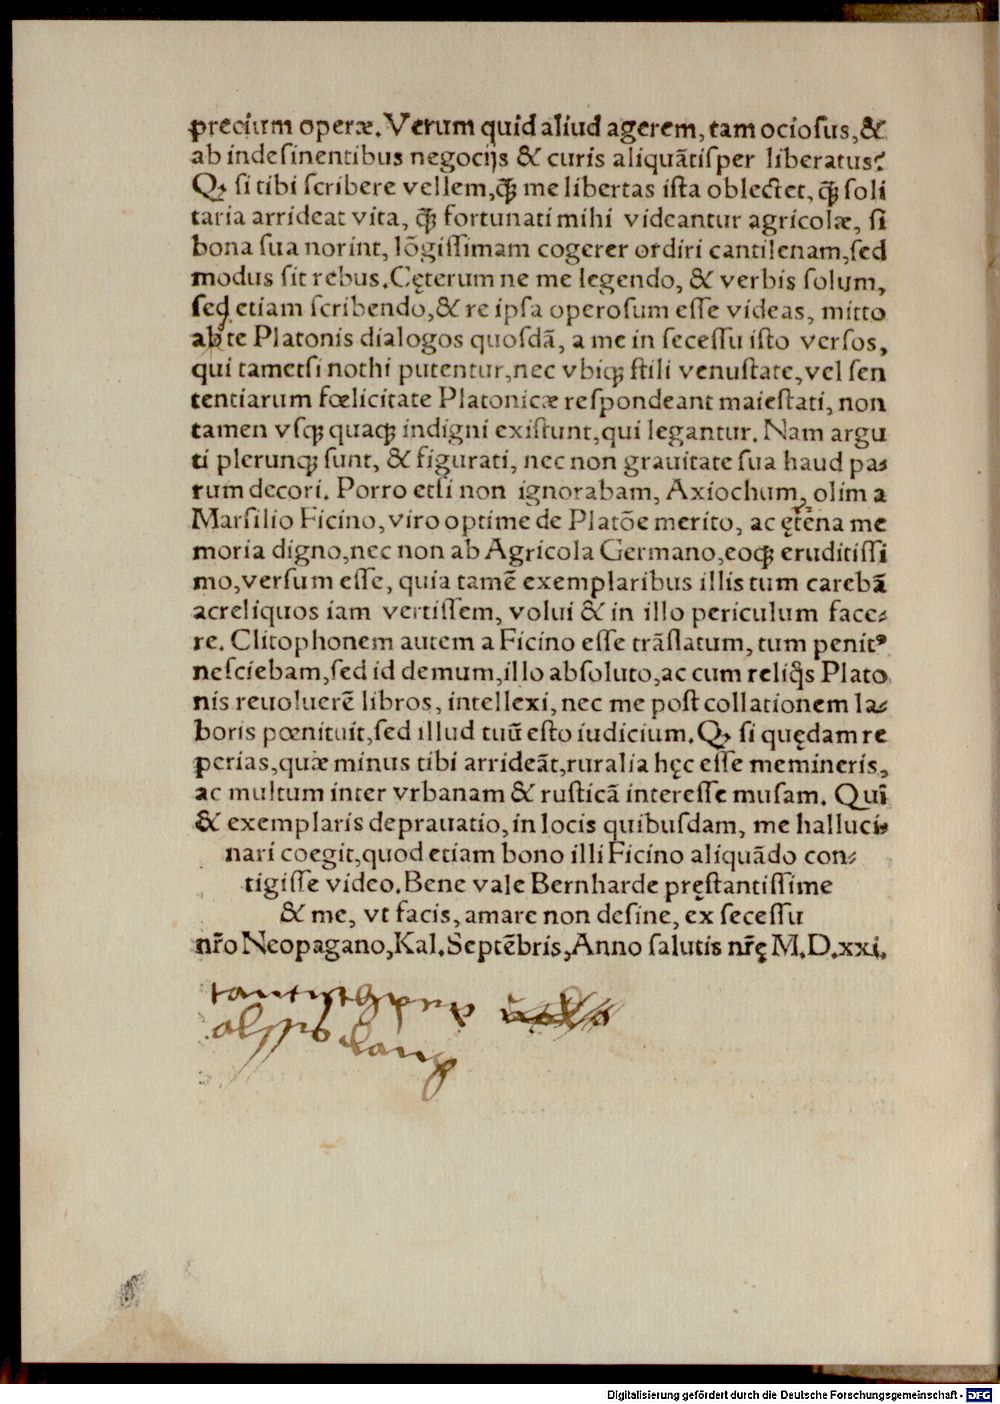 precium operæ. Verum quid aliud agerem, tam ociosus, &
ab indesinentibus negocijs & curis aliquãtisper liberatus?
Qꝫ si tibi scribere vellem, q̃ꝫ me libertas ista oblectet, q̃ꝫ soli
taria arrideat vita, q̃ꝫ fortunati mihi videantur agricolæ, si
bona sua norint, lõgissimam cogerer ordiri cantilenam, sed
modus sit rebus. Cęterum ne me legendo, & verbis solum,
sed etiam scribendo, & re ipsa operosum esse videas, mitto
ab te Platonis dialogos quosdã, a me in secessu isto versos,
qui tametsi nothi putentur, nec vbiqꝫ stili venustate, vel sen
tentiarum fœlicitate Platonicæ respondeant maiestati, non
tamen vsqꝫ quaqꝫ indigni existunt, qui legantur. Nam argu
ti plerunqꝫ sunt, & figurati, nec non grauitate sua haud pa⸗
rum decori. Porro etsi non ignorabam, Axiochum, olim a
Marsilio Ficino, viro optime de Platõe merito, ac ętena me
moria digno, nec non ab Agricola Germano, eoqꝫ eruditissi
mo, versum esse, quia tamẽ exemplaribus illis tum carebã
ac reliquos iam vertissem, volui & in illo periculum face⸗
re. Clitophonem autem a Ficino esse trãslatum, tum penitꝰ
nesciebam, sed id demum, illo absoluto, ac cum reliq̃s Plato
nis reuoluerẽ libros, intellexi, nec me post collationem la⸗
boris pœnituit, sed illud tuũ esto iudicium. Qꝫ si quędam re
perias, quæ minus tibi arrideãt, ruralia hęc esse memineris,
ac multum inter vrbanam & rusticã interesse musam. Quĩ
& exemplaris deprauatio, in locis quibusdam, me halluci⸗
nari coegit, quod etiam bono illi Ficino aliquãdo con⸗
tigisse video. Bene vale Bernharde pręstantissime
& me, vt facis, amare non desine, ex secessu
nr̃o Neopagano, Kal. Septẽbris, Anno salutis nr̃ę M. D. xxi.
Digitalisierung gefördert durch die Deutsche Forschungsgemeinschaft - DFG